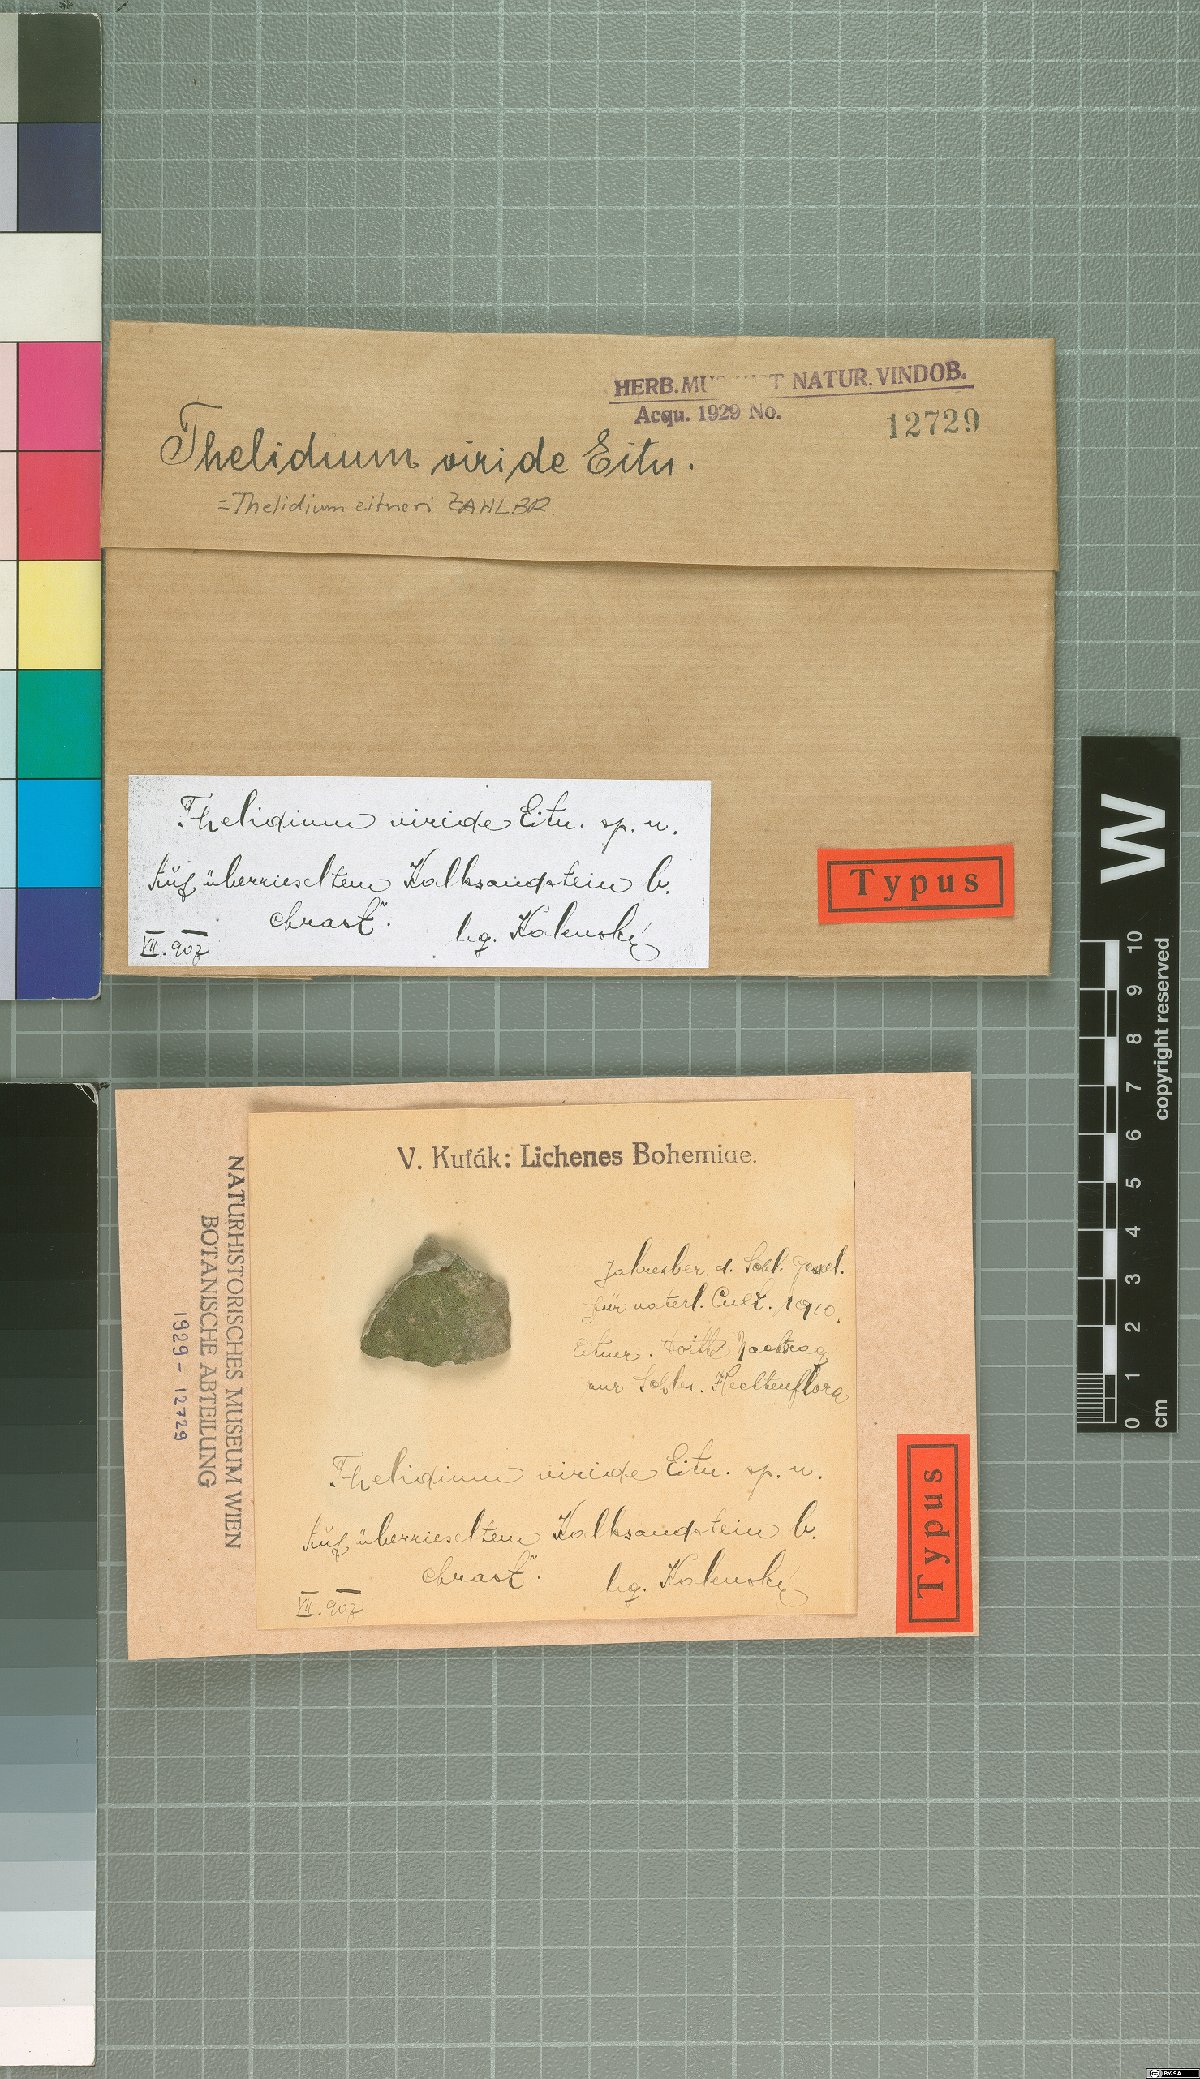 HERB. MUS. HIST. NATUR. VINDOB.
Acqu. 1929 No.
12729
Thelidium viride Eitn.
=Thelidium eitneri ZAHLBR
Thelidium viride Eitn. sp. n.
Auf überrieseltem Kalksandstein b.
Chrast.
VII. 907
lig. Kalenský
Typus
W
10
9
8
7
6
5
4
3
2
1
0
cm
copyright reserved
V. Kuťák: Lichenes Bohemiae.
Jahresber d. Schl. Gesel.
für vaterl. Cult. 1910.
Eitner. Dritt. Nachtrag
zur Schles. Flechtenflora
Thelidium viride Eitn. sp. n.
Auf überrieseltem Kalksandstein b.
Chrast.
VII. 907
lig. Kalenský
NATURHISTORISCHES MUSEUM WIEN
BOTANISCHE ABTEILUNG
1929 - 12729
Typus